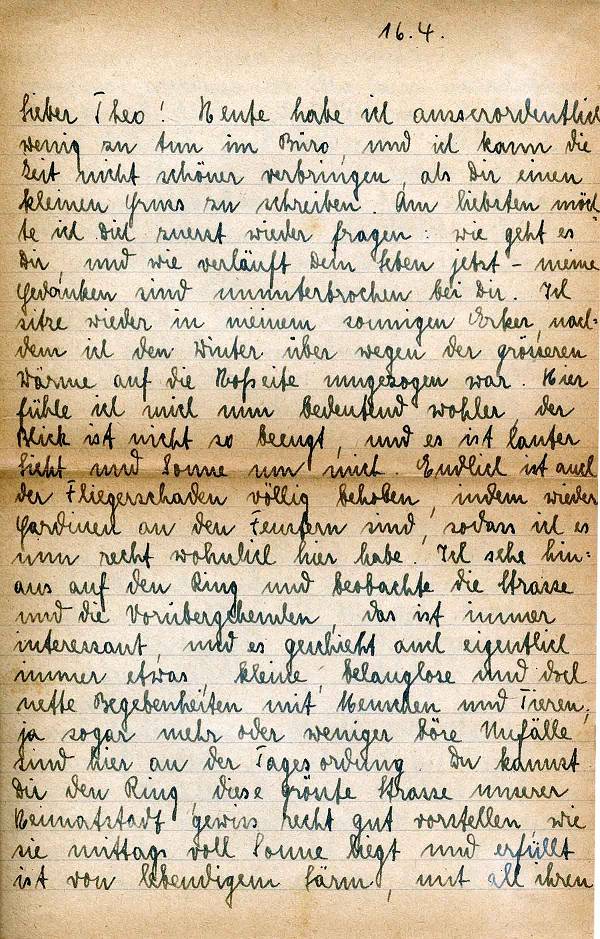 16.4.
Lieber Theo! Heute habe ich ausserordentlich
wenig zu tun im Büro, und ich kann die
Zeit nicht schöner verbringen, als Dir einen
kleinen Gruss zu schreiben. Am liebsten möch-
te ich Dich zuerst wieder fragen: wie geht es
Dir, und wie verläuft Dein Leben jetzt – meine
Gedanken sind ununterbrochen bei Dir. Ich
sitze wieder in meinem sonnigen Erker, nach-
dem ich den Winter über wegen der grösseren
Wärme auf die Hofseite umgezogen war. Hier
fühle ich mich nun bedeutend wohler, der
Blick ist nicht so beengt, und es ist lauter
Licht und Sonne um mich. Endlich ist auch
der Fliegerschaden völlig behoben, indem wieder
Gardinen an den Fenstern sind, sodass ich es
nun recht wohnlich hier habe. Ich sehe hin-
aus auf den Ring und beobachte die Strasse
und die Vorübergehenden, das ist immer
interessant, und es geschieht auch eigentlich
immer etwas, kleine, belanglose und doch
nette Begebenheiten mit Menschen und Tieren,
ja sogar mehr oder weniger böse Unfälle
sind hier an der Tagesordnung. Du kannst
Dir den Ring, diese grösste Strasse unserer
Heimatstadt, gewiss recht gut vorstellen, wie
sie mittags voll Sonne liegt und erfüllt
ist von lebendigem Lärm, mit all ihren